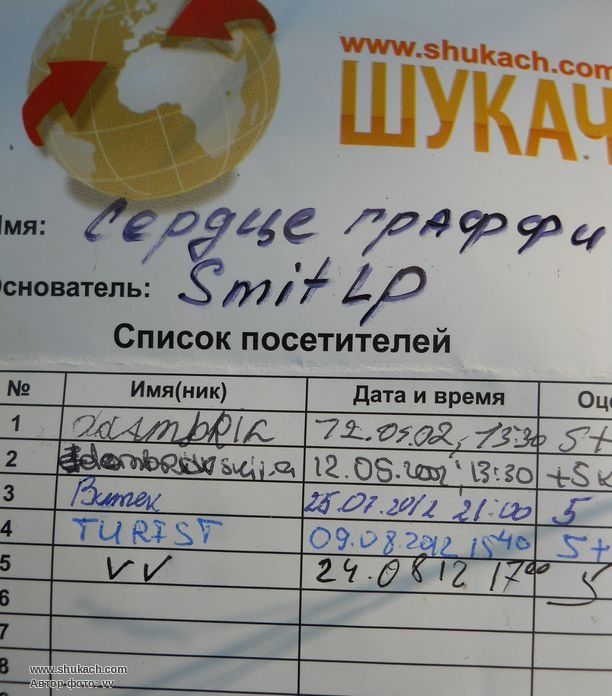 www.shukach.com
ШУКАЧ
Имя: Сердце граффи
Основатель: Smit LP
Список посетителей
№ Имя(ник) Дата и время Оце
1 13:30 5+
2 13:30
3 Витек 25.07.2012 21:00 5
4 TURIST 09.08.2012 15 40 5+
5 VV 24.08 12 17 00 5
6
7
8
www.shukach.com
Автор фото: vv